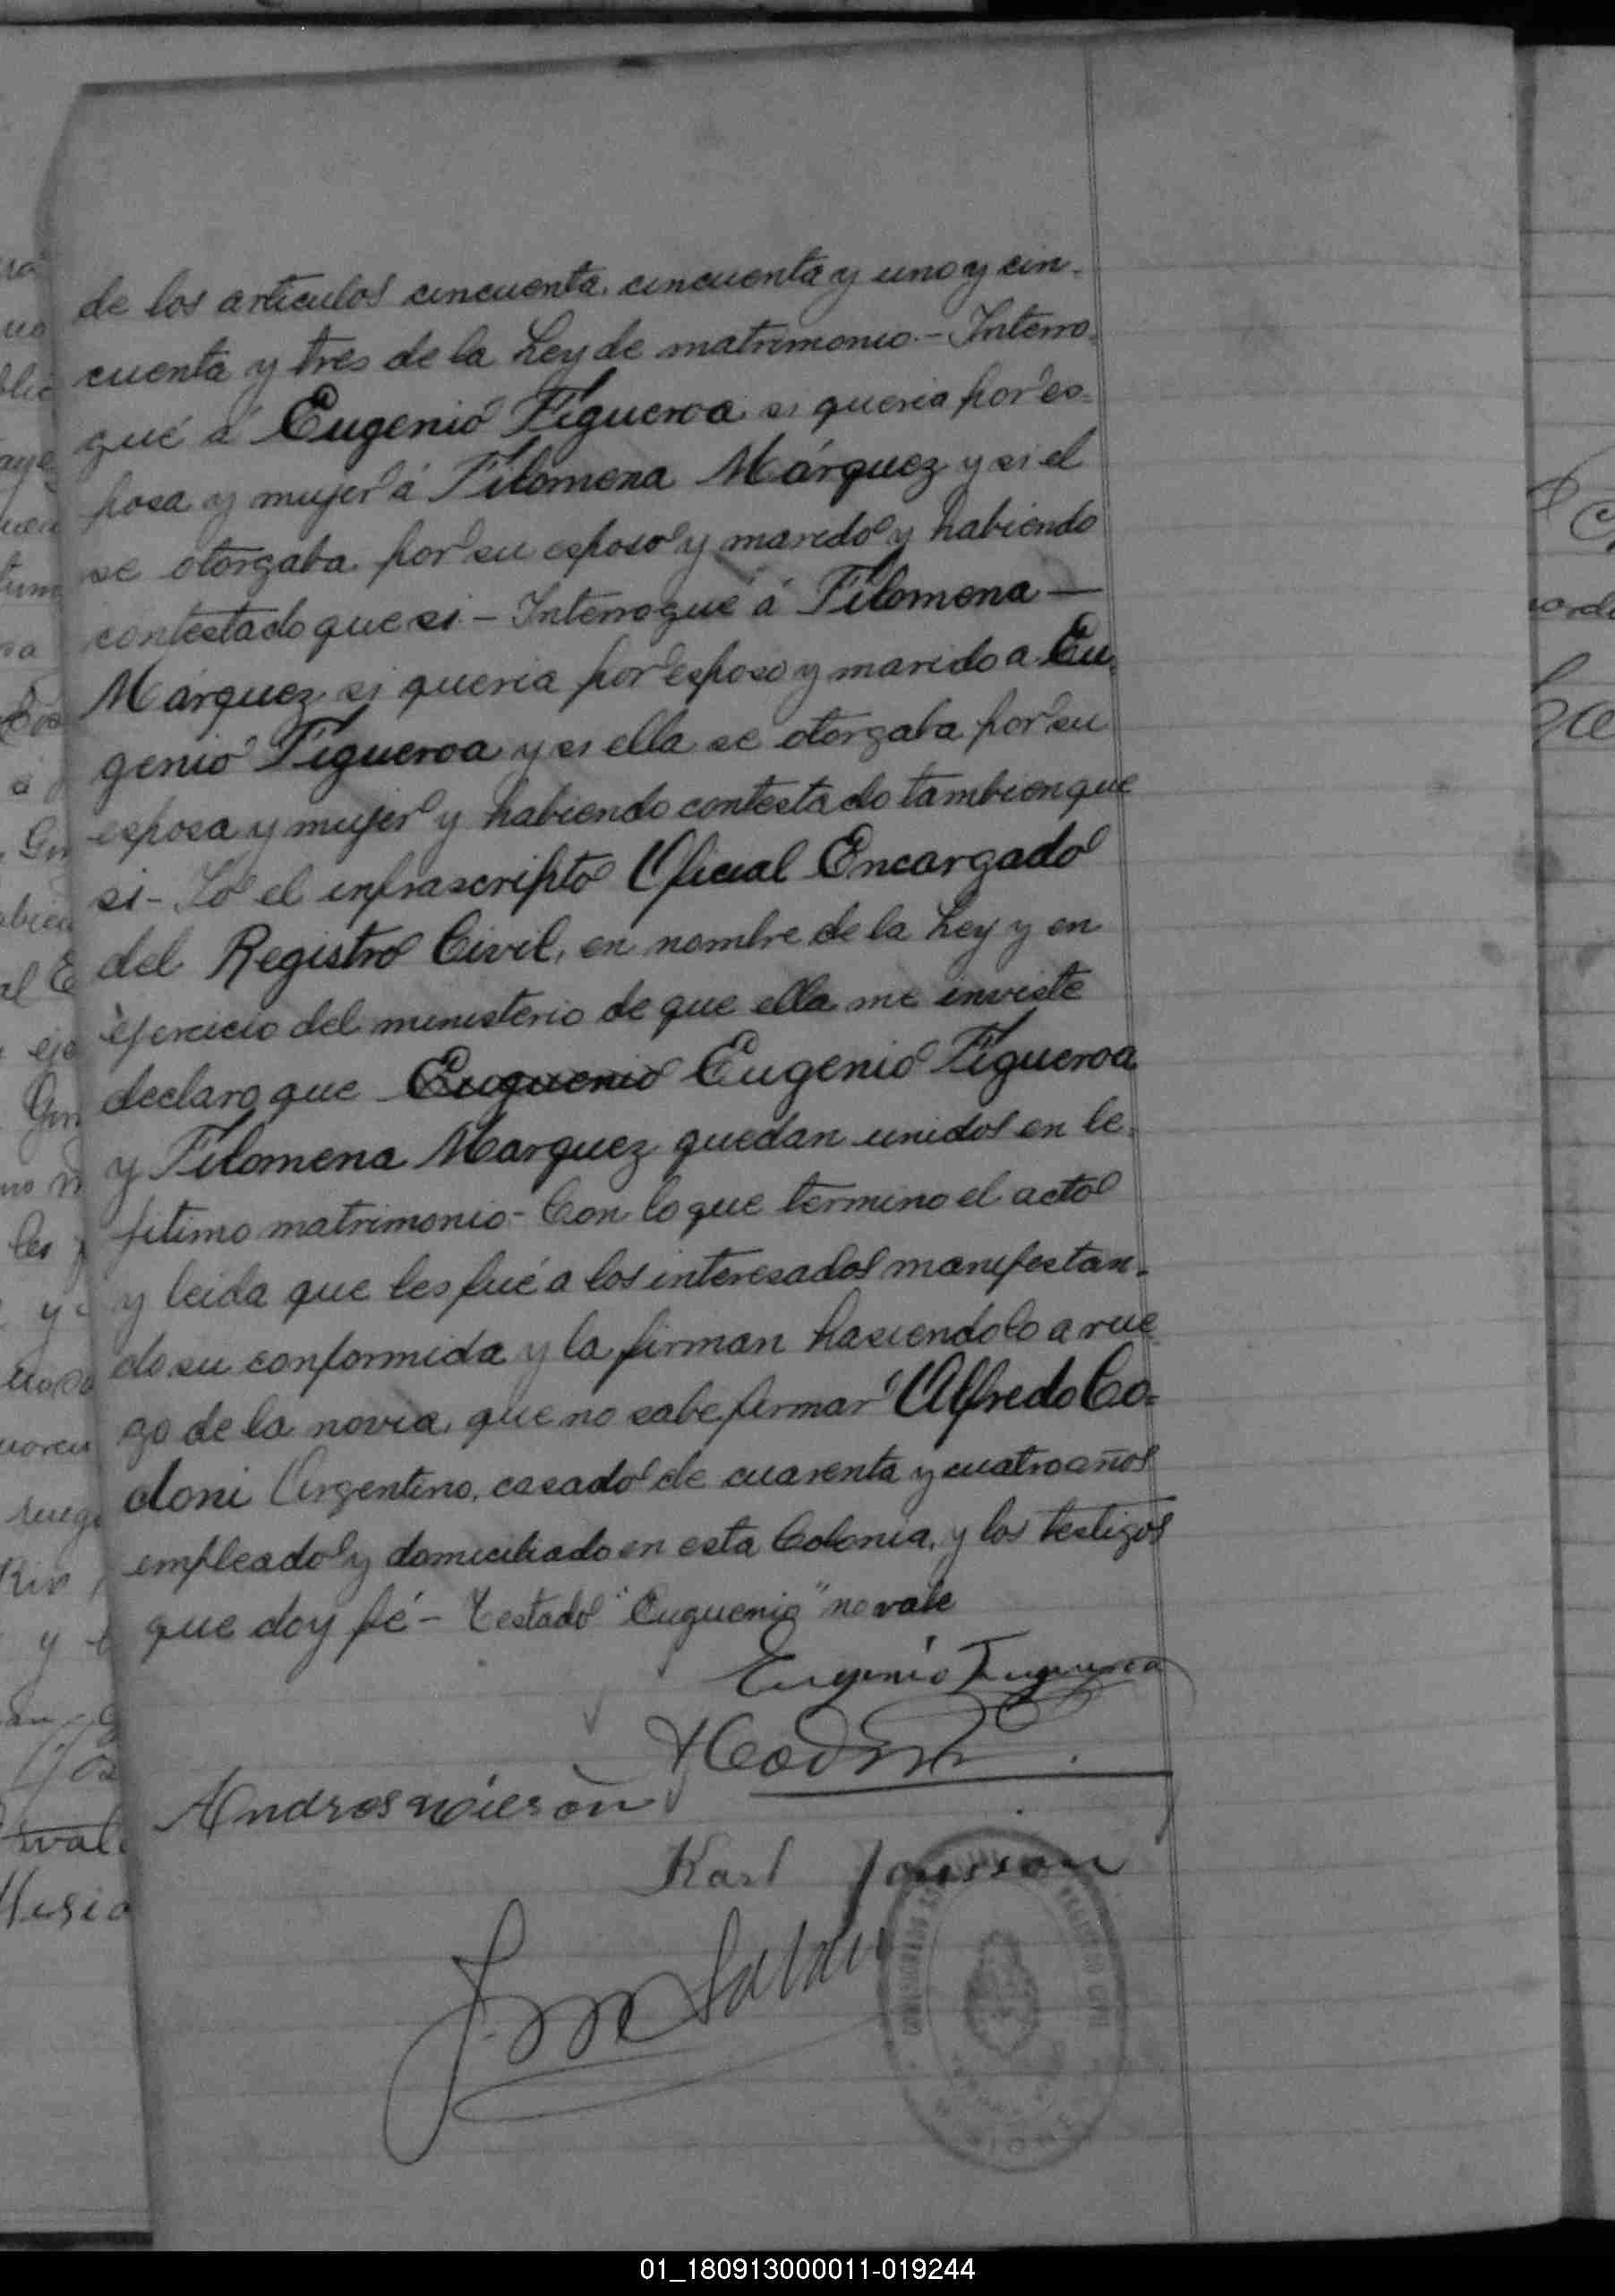 de los articulos cincuenta, cincuenta y uno y cin-
cuenta y tres de la Ley de matrimonio.- Interro-
gué á Eugenio Figueroa si queria por es-
posa y mujer á Filomena Márquez y si el
se otorgaba por su esposo y marido y habiendo
contestado que si - Interrogué á Filomena -
Márquez si queria por esposo y marido a Eu-
genio Figueroa y si ella se otorgaba por su
esposa y mujer y habiendo contestado tambien que
si - Yo el infrascripto Oficial Encargado
del Registro Civil, en nombre de la Ley y en
ejercicio del ministerio de que ella me inviste
declaro que Euguenio Eugenio Figueroa
y Filomena Marquez quedan unidos en le-
jitimo matrimonio - Con lo que termino el acto
y leida que les fué a los interesados manifestan-
do su conformida y la firman hasiendolo a rue
go de la novia, que no sabe firmar Alfredo Co-
doni Argentino, casado de cuarenta y cuatro años
empleado y domiciliado en esta Colonia, y los testigos
que doy fé - Testado "Euguenio" no vale
Eugenio Figueroa
Codoni
Andres
Karl
REGISTRO CIVIL
01_180913000011-019244